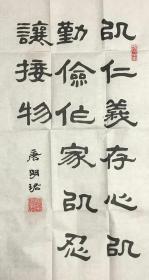 以仁義存心以
勤儉作家以忍
讓接物
唐明